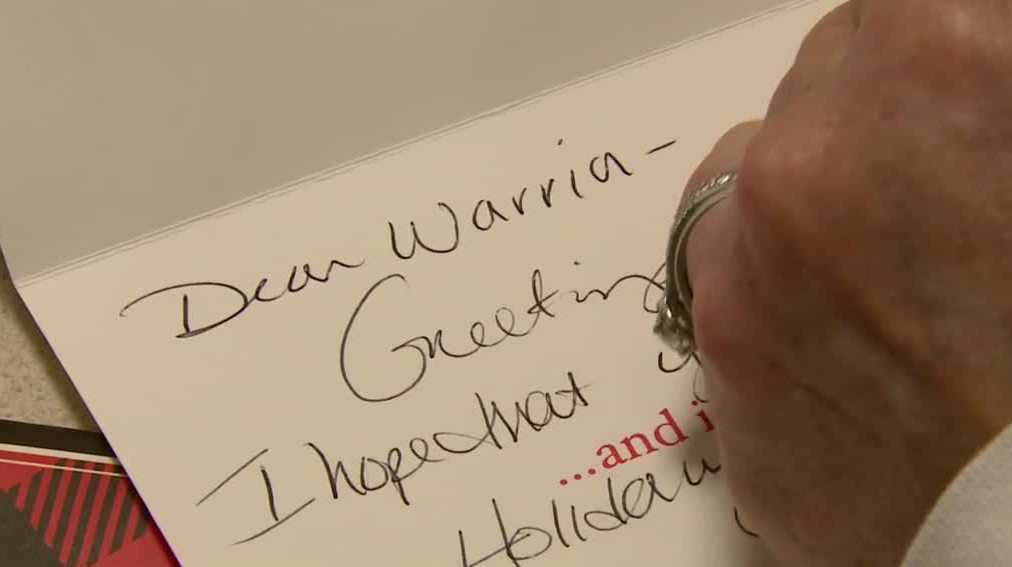 Dear Warria -
Greeting
I hope that y
...and i
Holiday